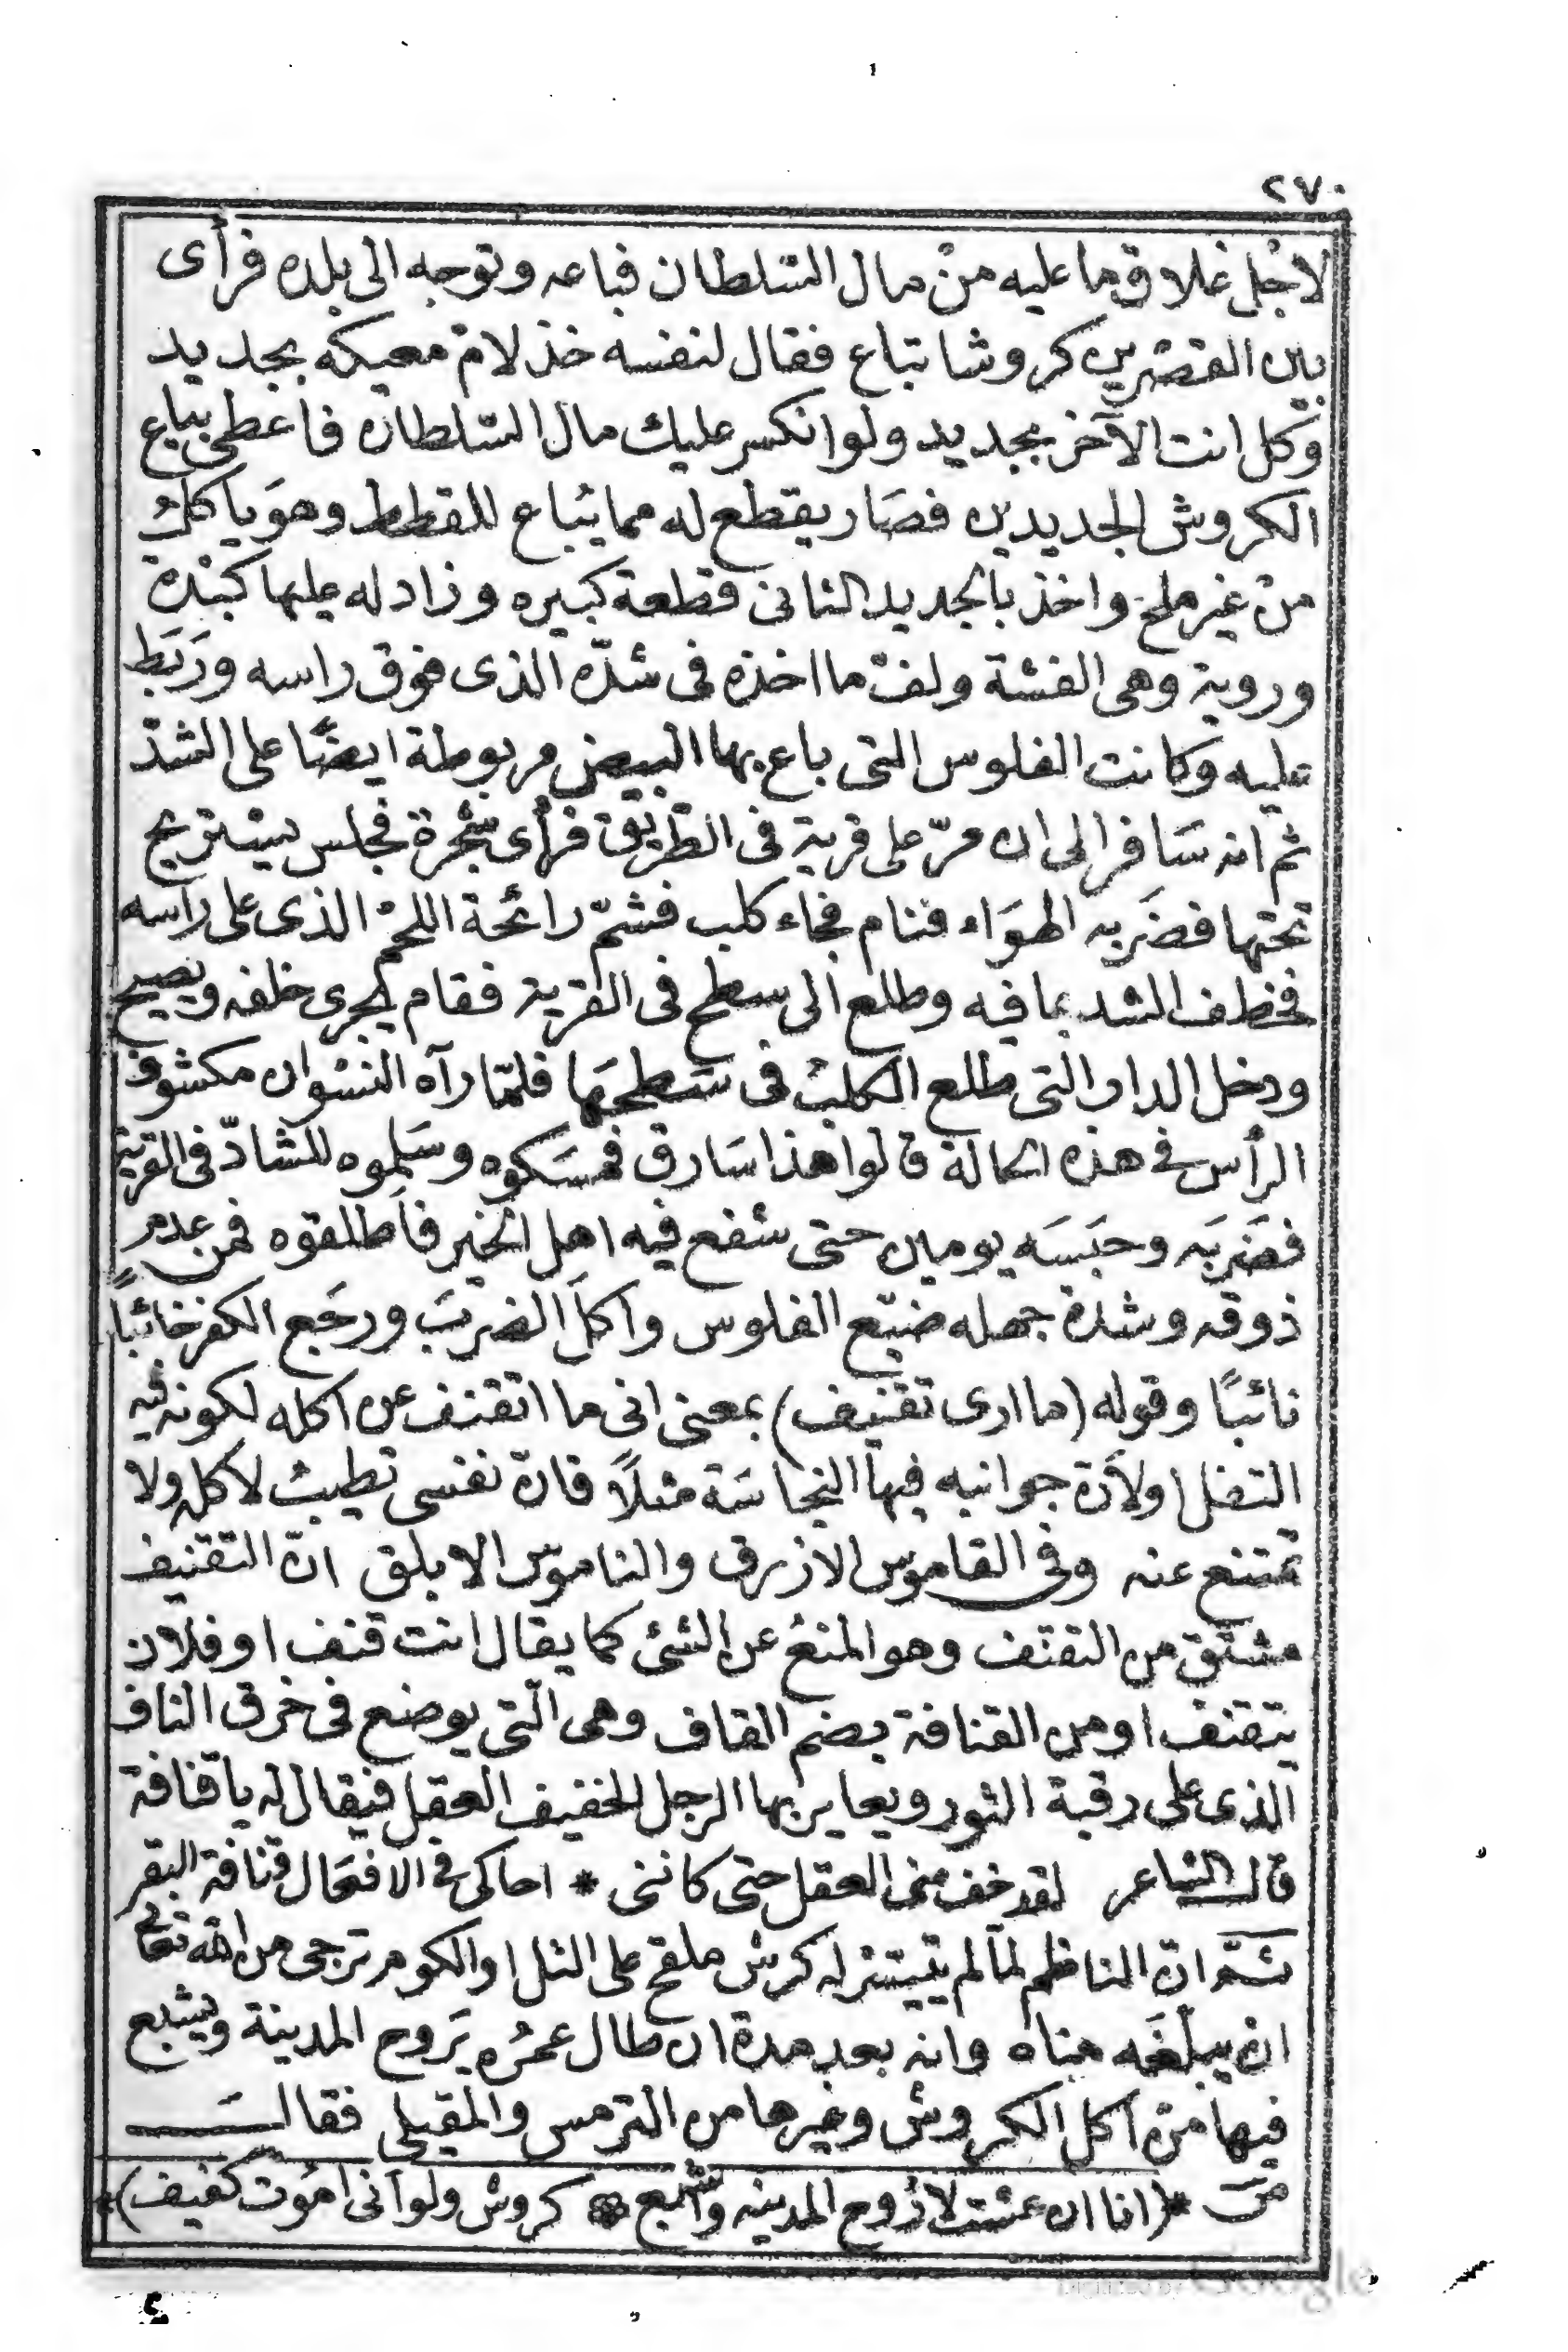 ٢٧٠
لاجل غلاق ما عليه من مال السّلطان فباعه وتوجه الى بلده فرأى
بين القصرين كروشا تباع فقال لنفسه خذ لامّ معيكه بجديد
وكل انت الآخر بجديد ولو انكسر عليك مال السّلطان فأعطى بياع
الكروش الجديدين فصَار يقطع له مما يُباع للقطط وهوَ يأكلُ
منْ غير ملح واخذ بالجديد الثانى قطعة كبيره وزاد له عليها كبْدة
وروية وهى الفشة ولفّ ما اخذه فى شدّه الذى فوق راسه ورَبَط
عليه وكانت الفلوس التى باع بها البيض مربوطة ايضًا على الشدّ
ثم انه سَافر الى ان مرّ على قرية فى الطّريق فرأى شجرة فجلس يستريح
تحتها فضرَبه الهوَاء فنام فجاء كلب فشمّ رائحة اللحمْ الذى على رأسه
فخطف الشد بما فيه وطلع الى سطح فى القرية فقام يجرى خلفه ويصيح
ودخل الدار التى طلع الكلبُ فى سَطحهَا فلمّا رآه النسْوان مكشوف
الرأس فى هذه الحالة قالوا هذا سَارق فمسَكوه وسَلموه للشادّ فى القرية
فضَربَه وحبَسَه يومين حتى شفع فيه اهل الخير فأطلقوه فمن عدم
ذوقه وشدة جهله ضيّع الفلوس واكلَ الضربَ ورجَع الكفر خائبًا
نائبًا وقوله (ما ارى تقنيف) بمعنى انى ما اتقنف عن اكله لكونه فيه
التفل او لأنّ جوانبه فيها النجاسَة مثلًا فانّ نفسى تطيبُ لأكله ولا
تمتنع عنه وفى القاموس الازرق والناموس الابلق انّ التقنيف
مشتق من التقنّف وهو المنعُ عن الشئ كما يقال انت قنف او فلان
يتقنف او من القنافة بضم القاف وهى الّتى يوضع فى خرق الناف
الذى على رقبة الثور ويعاير بها الرجل الخفيف العقل فيقال له يا قنافة
قال الشاعر لقد خف منى العقل حتى كاننى * احاكى فى الافعَال قنافة البقر
ثمّ انّ الناظم لمّا لم يتيسّر له كرش ملقح على التل او الكوم ترجى من الله تعالى
انْ يبلّغَه مناه وانه بعد مدة ان طال عمرُه يَروح المدينة ويشبع
فيها منْ اكل الكروش وغيرها من الترمس والمقيلى فقالَ
صَ *(انا ان عشت لاروح المدينه واشبع * كروش ولو انى امُوت كفيف)*